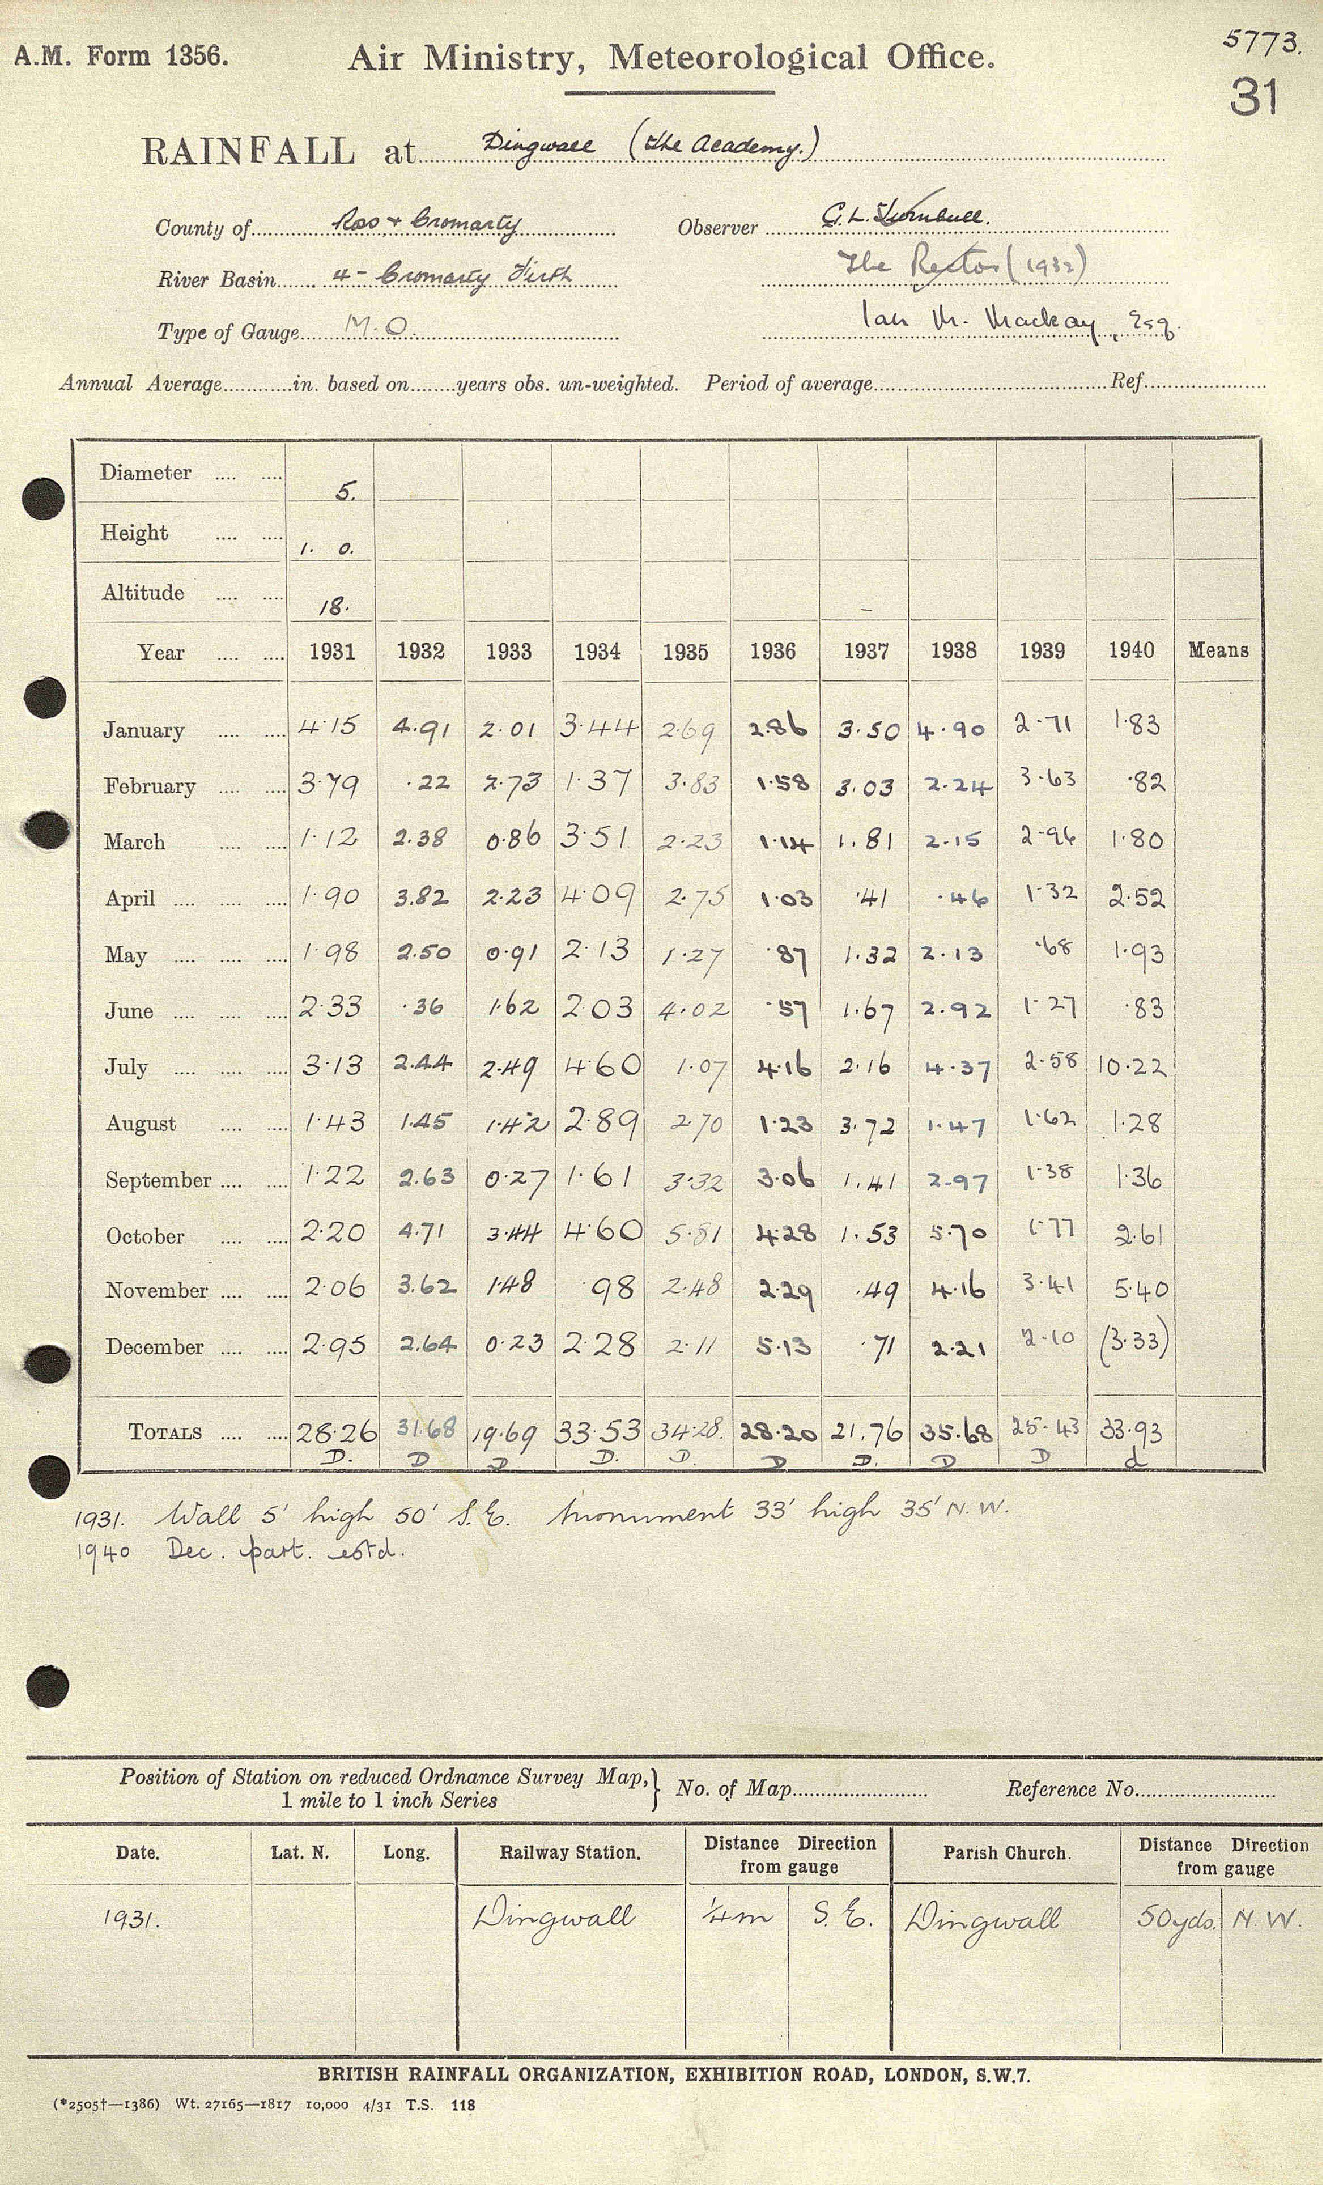 5773.
A.M. Form 1356. Air Ministry, Meteorological Office.
31
RAINFALL at Dingwall (The Academy.)
County of Ross & Cromarty Observer G. L. Turnbull.
River Basin 4 - Cromarty Firth The Rector (1932)
Type of Gauge M.O. Ian M. Mackay, Esq.
Annual Average in. based on years obs. un-weighted. Period of average Ref
Diameter 5.
Height 1. 0.
Altitude 18. -
Year 1931 1932 1933 1934 1935 1936 1937 1938 1939 1940 Means
January 4.15 4.91 2.01 3.44 2.69 2.86 3.50 4.90 2.71 1.83
February 3.79 .22 2.73 1.37 3.83 1.58 3.03 2.24 3.63 .82
March 1.12 2.38 0.86 3.51 2.23 1.14 1.81 2.15 2.96 1.80
April 1.90 3.82 2.23 4.09 2.75 1.03 .41 .46 1.32 2.52
May 1.98 2.50 0.91 2.13 1.27 .87 1.32 2.13 .68 1.93
June 2.33 .36 1.62 2.03 4.02 .57 1.67 2.92 1.27 .83
July 3.13 2.44 2.49 4.60 1.07 4.16 2.16 4.37 2.58 10.22
August 1.43 1.45 1.42 2.89 2.70 1.23 3.72 1.47 1.62 1.28
September 1.22 2.63 0.27 1.61 3.32 3.06 1.41 2.97 1.38 1.36
October 2.20 4.71 3.44 4.60 5.81 4.28 1.53 5.70 1.77 2.61
November 2.06 3.62 1.48 .98 2.48 2.29 .49 4.16 3.41 5.40
December 2.95 2.64 0.23 2.28 2.11 5.13 .71 2.21 2.10 (3.33)
TOTALS 28.26 31.68 19.69 33.53 34.28. 28.20 21.76 35.68 25.43 33.93
D. D D D. D. D D. D D d
1931. Wall 5' high 50' S.E. Monument 33' high 35' N.W.
1940 Dec. part. estd.
Position of Station on reduced Ordnance Survey Map, } No. of Map Reference No.
1 mile to 1 inch Series
Date. Lat. N. Long. Railway Station. Distance Direction from gauge Parish Church. Distance Direction from gauge
1931. Dingwall ¼m S.E. Dingwall 50yds. N.W.
BRITISH RAINFALL ORGANIZATION, EXHIBITION ROAD, LONDON, S.W.7.
(*2505†—1386) Wt. 27165—1817 10,000 4/31 T.S. 118